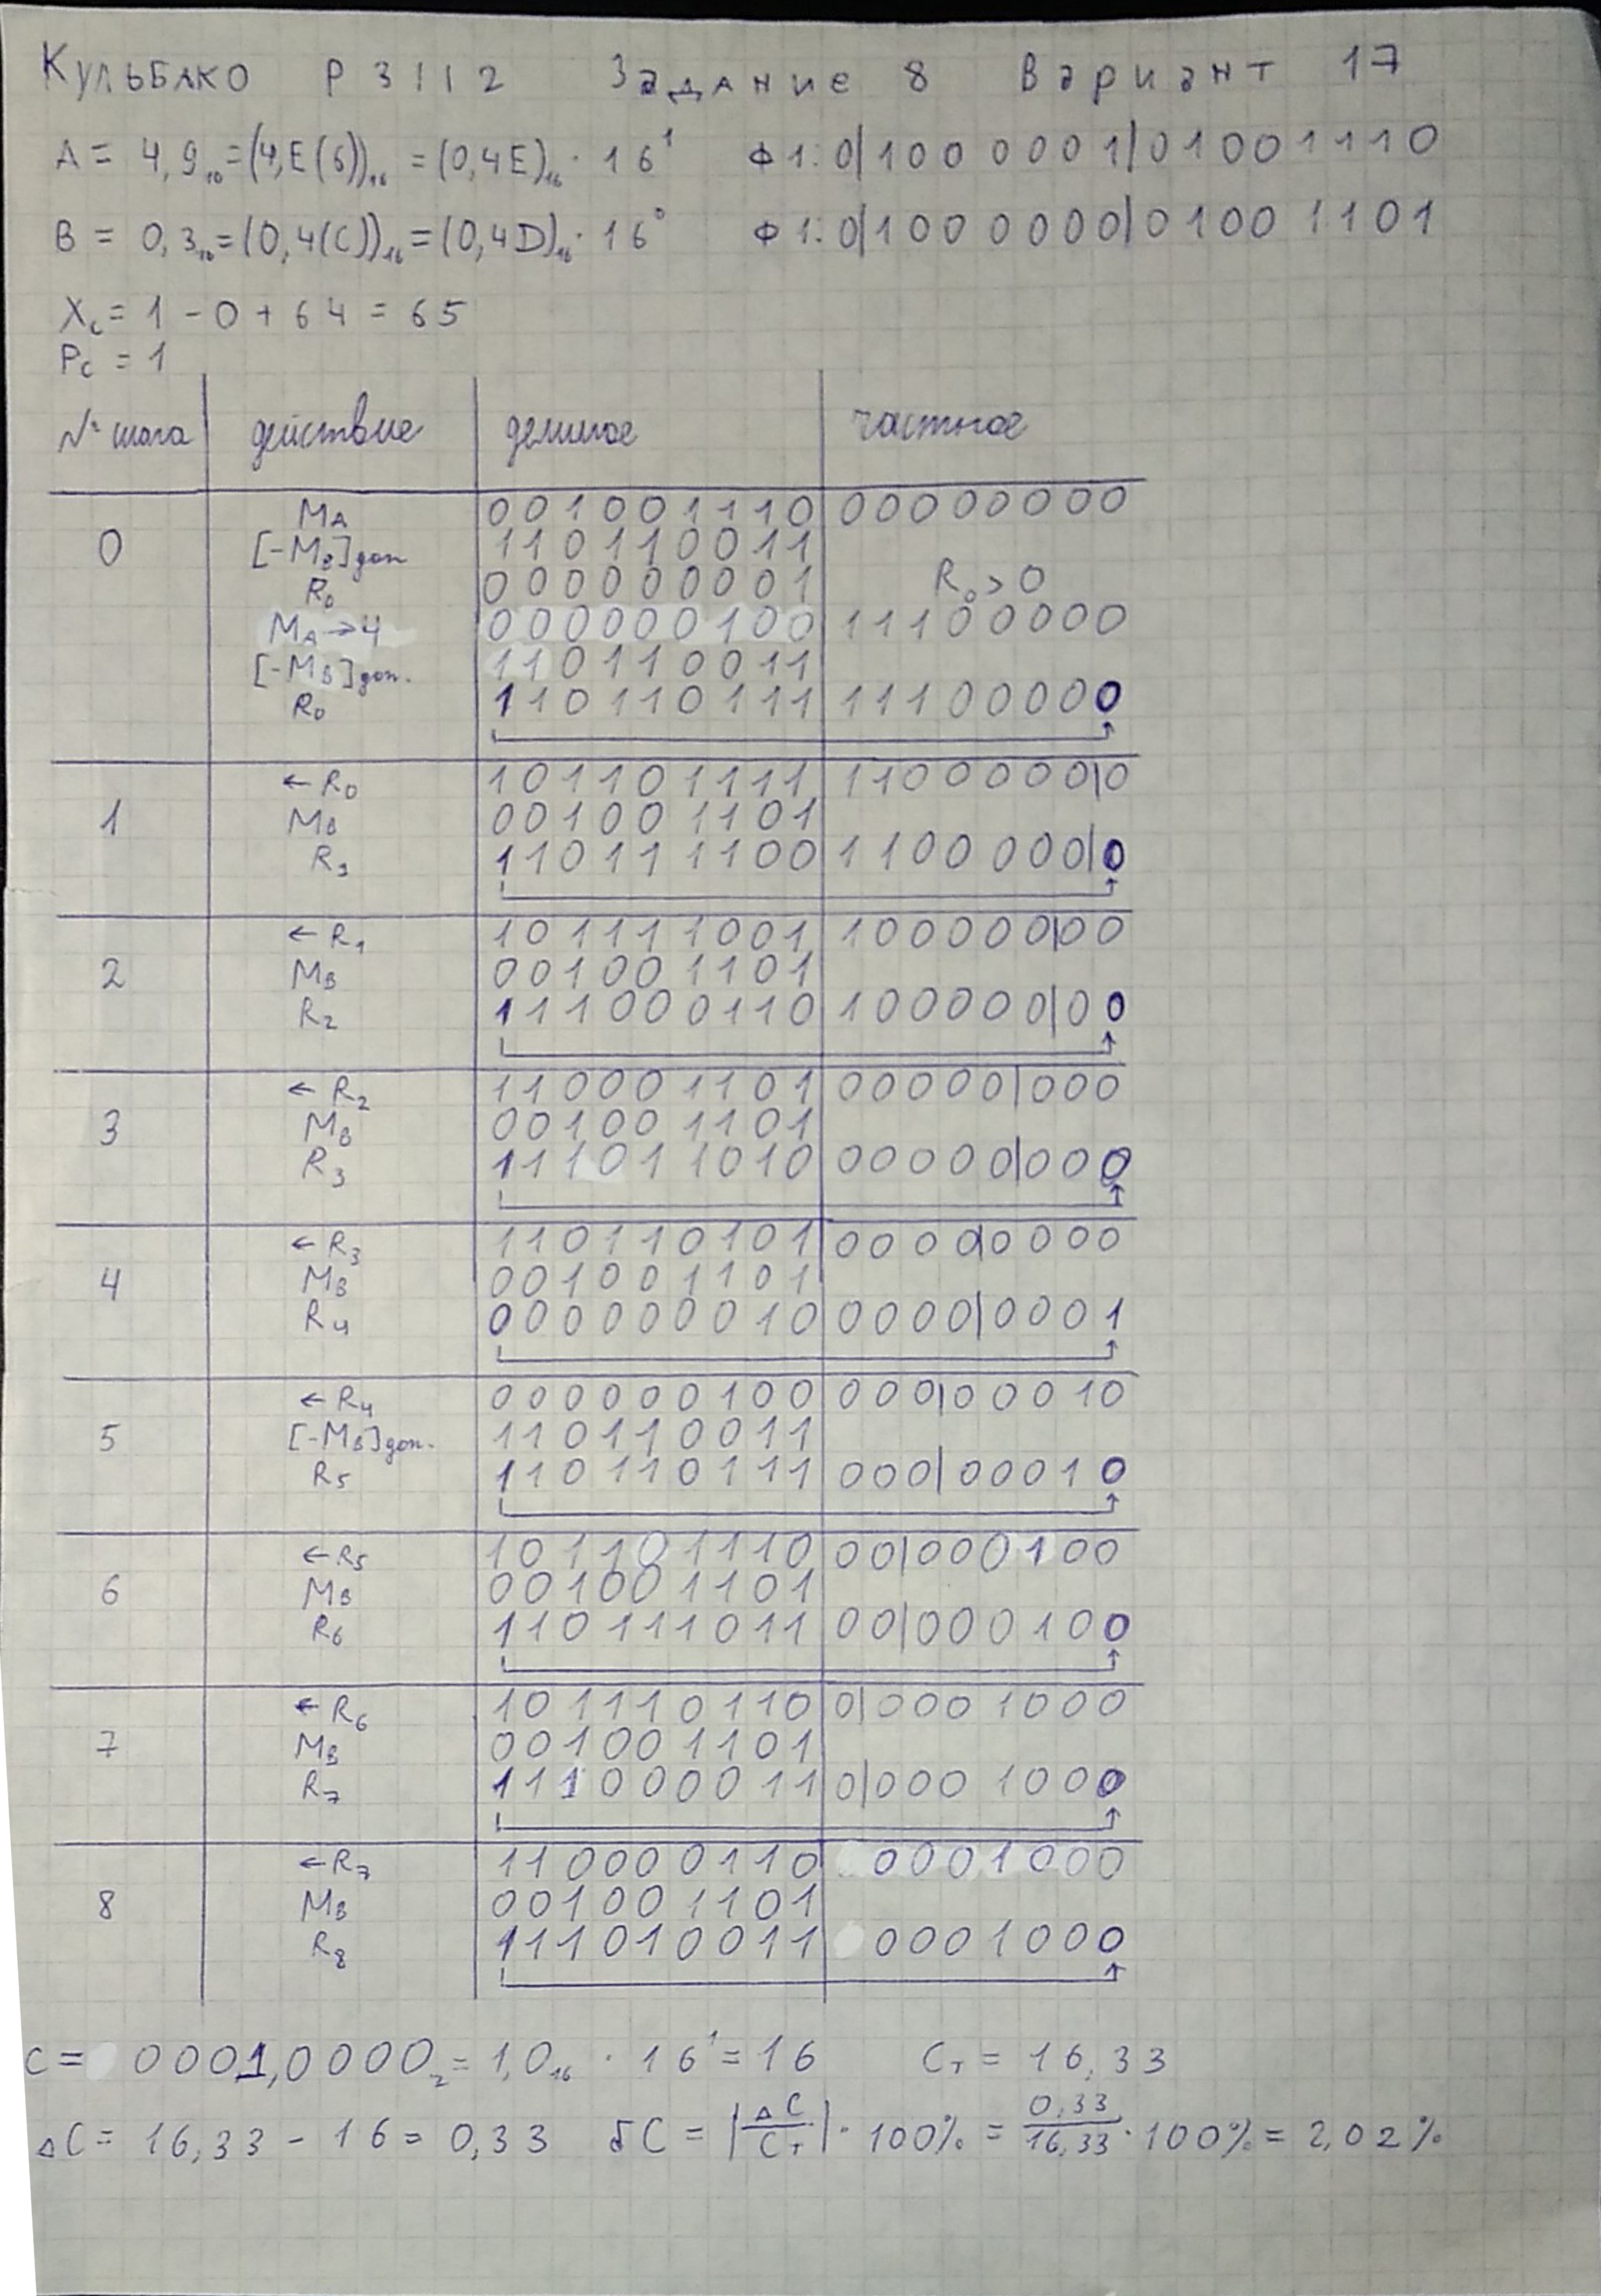 Кульбако Р3112 Задание 8 Вариант 17
A = 4,9₁₀ = (4,E(6))₁₆ = (0,4E)₁₆ · 16¹ Ф1: 0|100 0001|01001110
B = 0,3₁₀ = (0,4(C))₁₆ = (0,4D)₁₆ · 16⁰ Ф1: 0|100 0000|0100 1101
Xc = 1 - 0 + 64 = 65
Pc = 1
№ шага действие делимое частное
0 MA 001001110 00000000
[-MB]доп 110110011
R₀ 000000001 R₀ > 0
MA→4 000000100 11100000
[-MB]доп. 110110011
R₀ 110110111 11100000
1 ←R₀ 101101111 1100000|0
MB 001001101
R₁ 110111100 1100000|0
2 ←R₁ 101111001 100000|00
MB 001001101
R₂ 111000110 100000|00
3 ←R₂ 110001101 00000|000
MB 001001101
R₃ 111011010 00000|000
4 ←R₃ 110110101 0000|0000
MB 001001101
R₄ 000000010 0000|0001
5 ←R₄ 000000100 000|00010
[-MB]доп. 110110011
R₅ 110110111 000|00010
6 ←R₅ 101101110 00|000100
MB 001001101
R₆ 110111011 00|000100
7 ←R₆ 101110110 0|0001000
MB 001001101
R₇ 111000011 0|0001000
8 ←R₇ 110000110 0001000
MB 001001101
R₈ 111010011 0001000
C = 0001,0000₂ = 1,0₁₆ · 16¹ = 16 Cт = 16,33
ΔC = 16,33 - 16 = 0,33 δC = |ΔC/Cт| · 100% = 0,33/16,33 · 100% = 2,02%